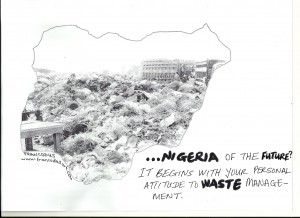 ...NIGERIA OF THE FUTURE?
IT BEGINS WITH YOUR PERSONAL
ATTITUDE TO WASTE MANAGE-
MENT.